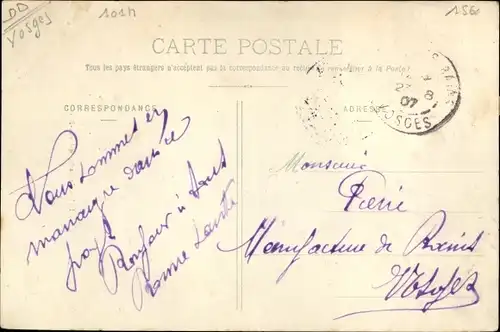 DD
Vosges
1014
156
CARTE POSTALE
Tous les pays étrangers n'acceptent pas la correspondance au recto (se renseigner à la Poste)
CORRESPONDANCE
ADRESSE
8
07
VOSGES
Nous sommes en
dans le
pays
Bonjour à tous
Bonne Santé
Monsieur
Manufacture de
Vosges